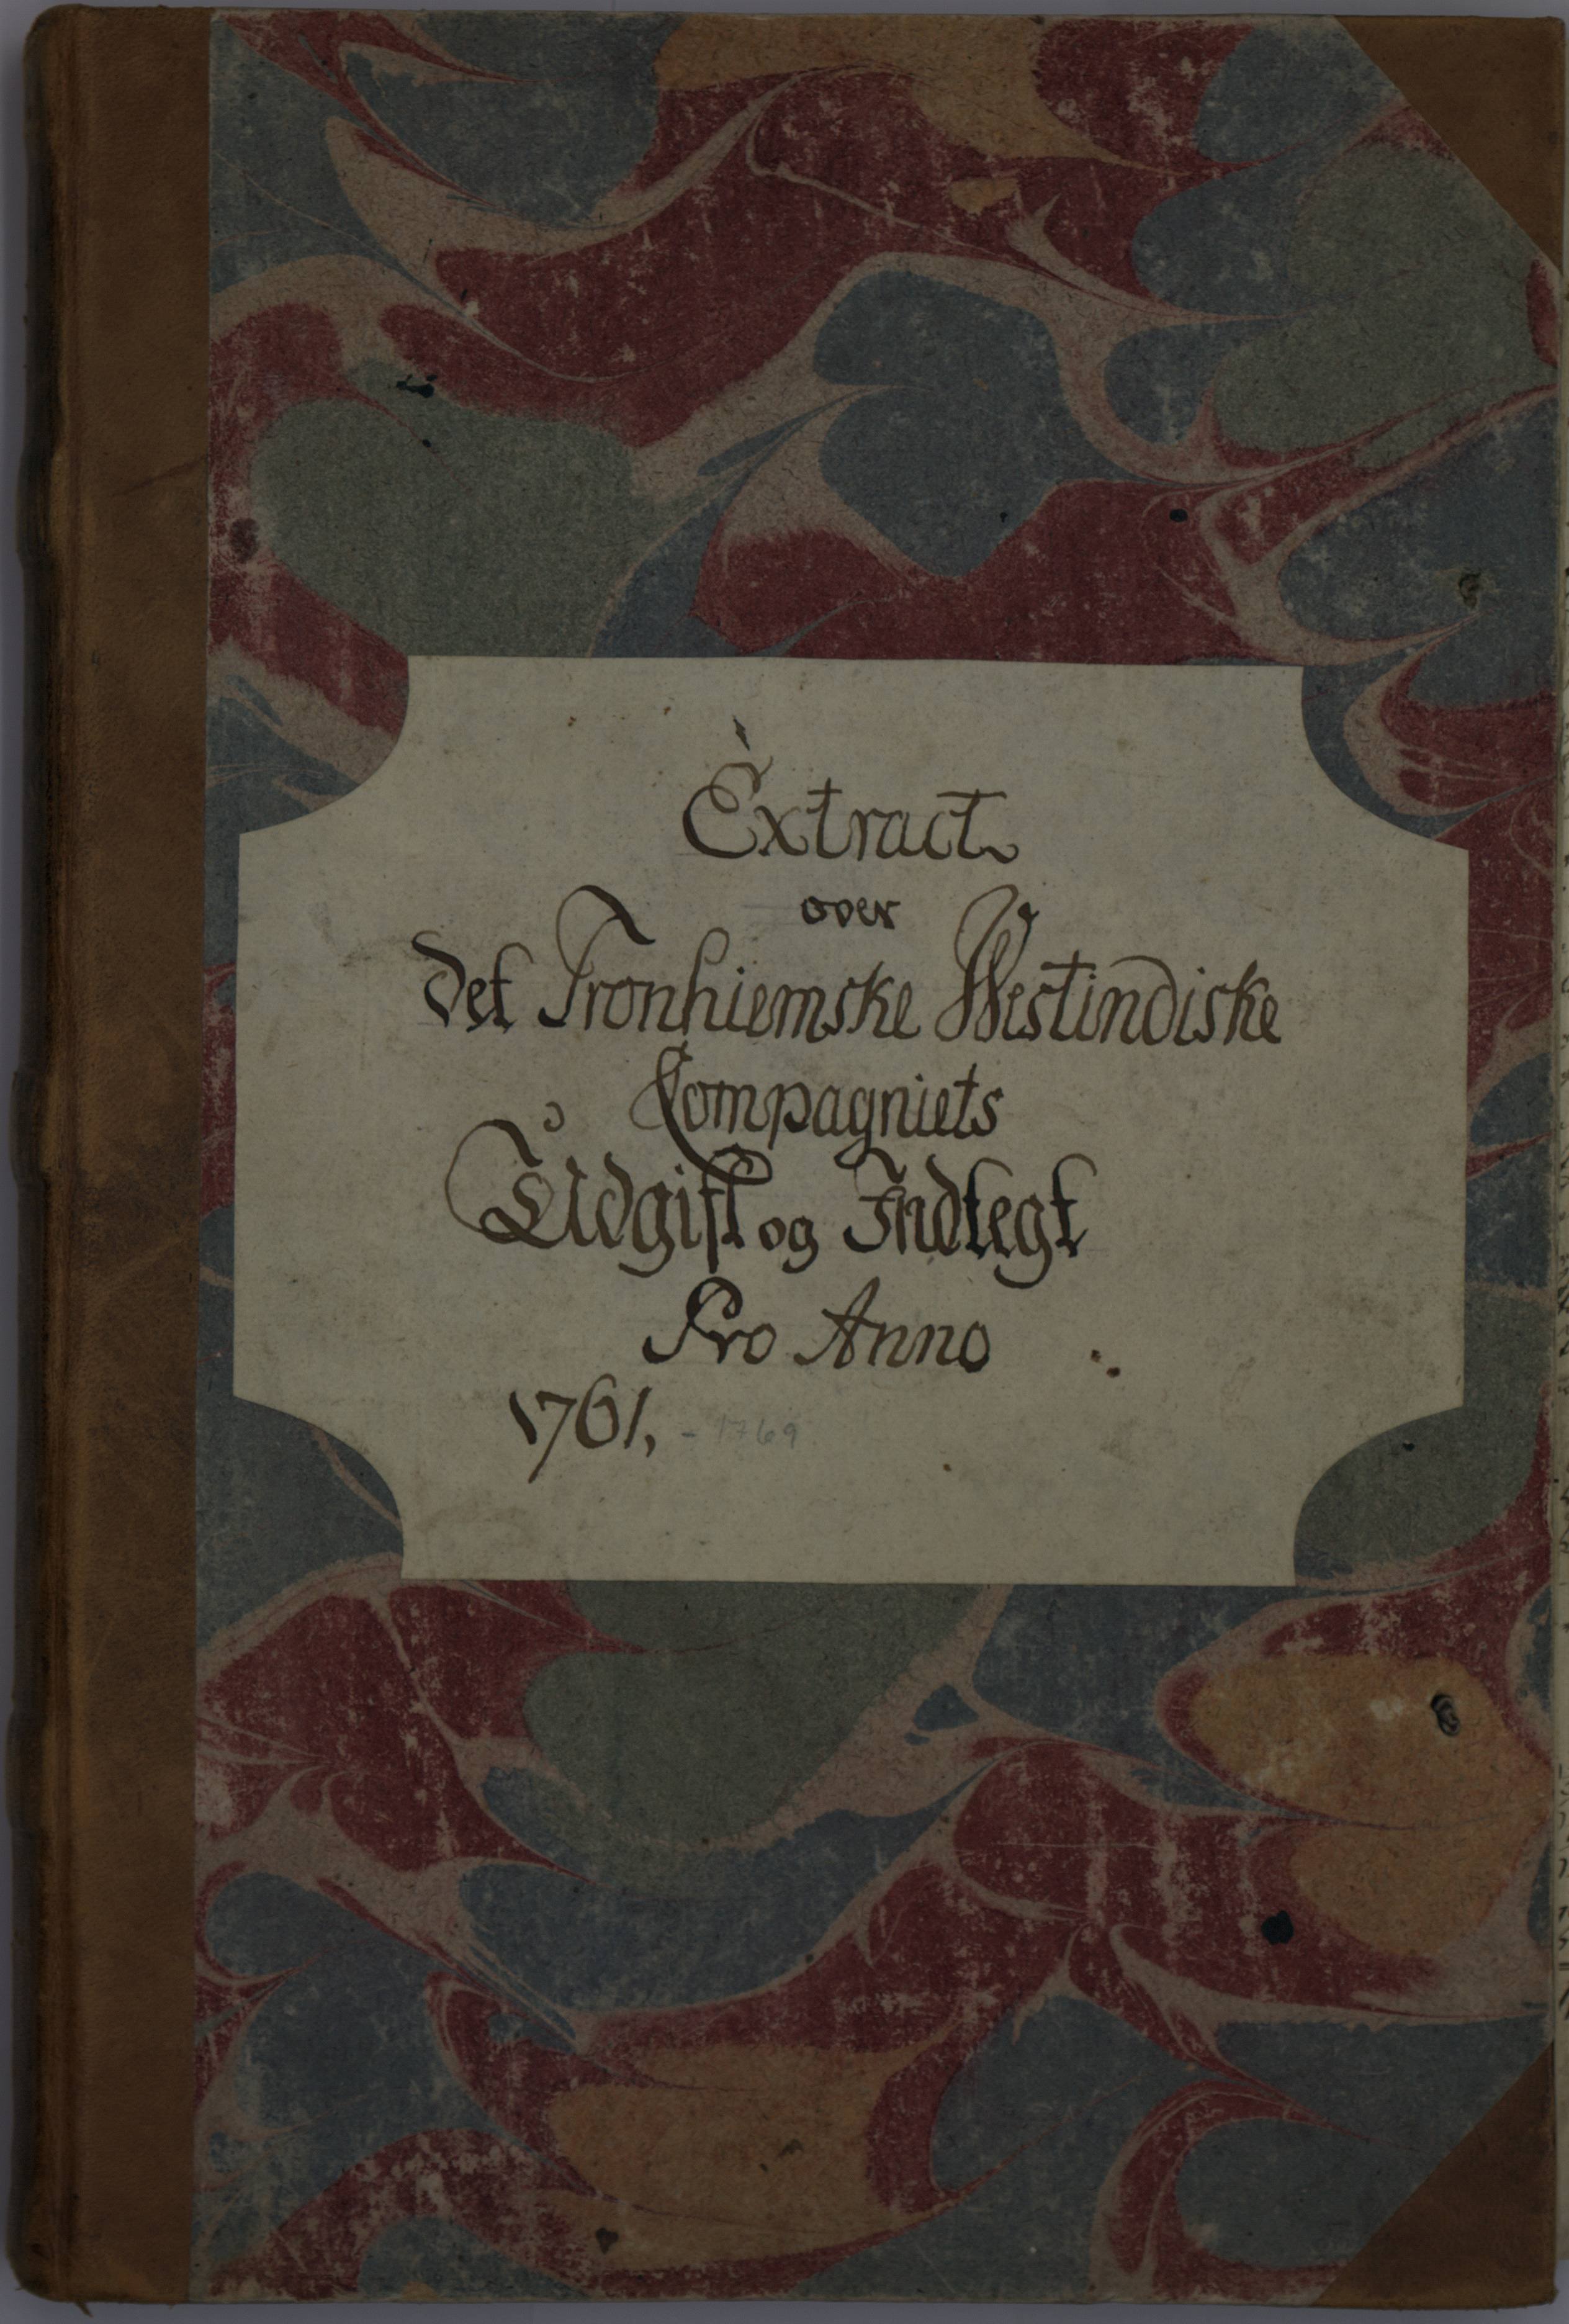 Extract
over
det Tronhiemske Westindiske
Compagniets
Udgift og Indtegt
Pro Anno
1761, - 1769